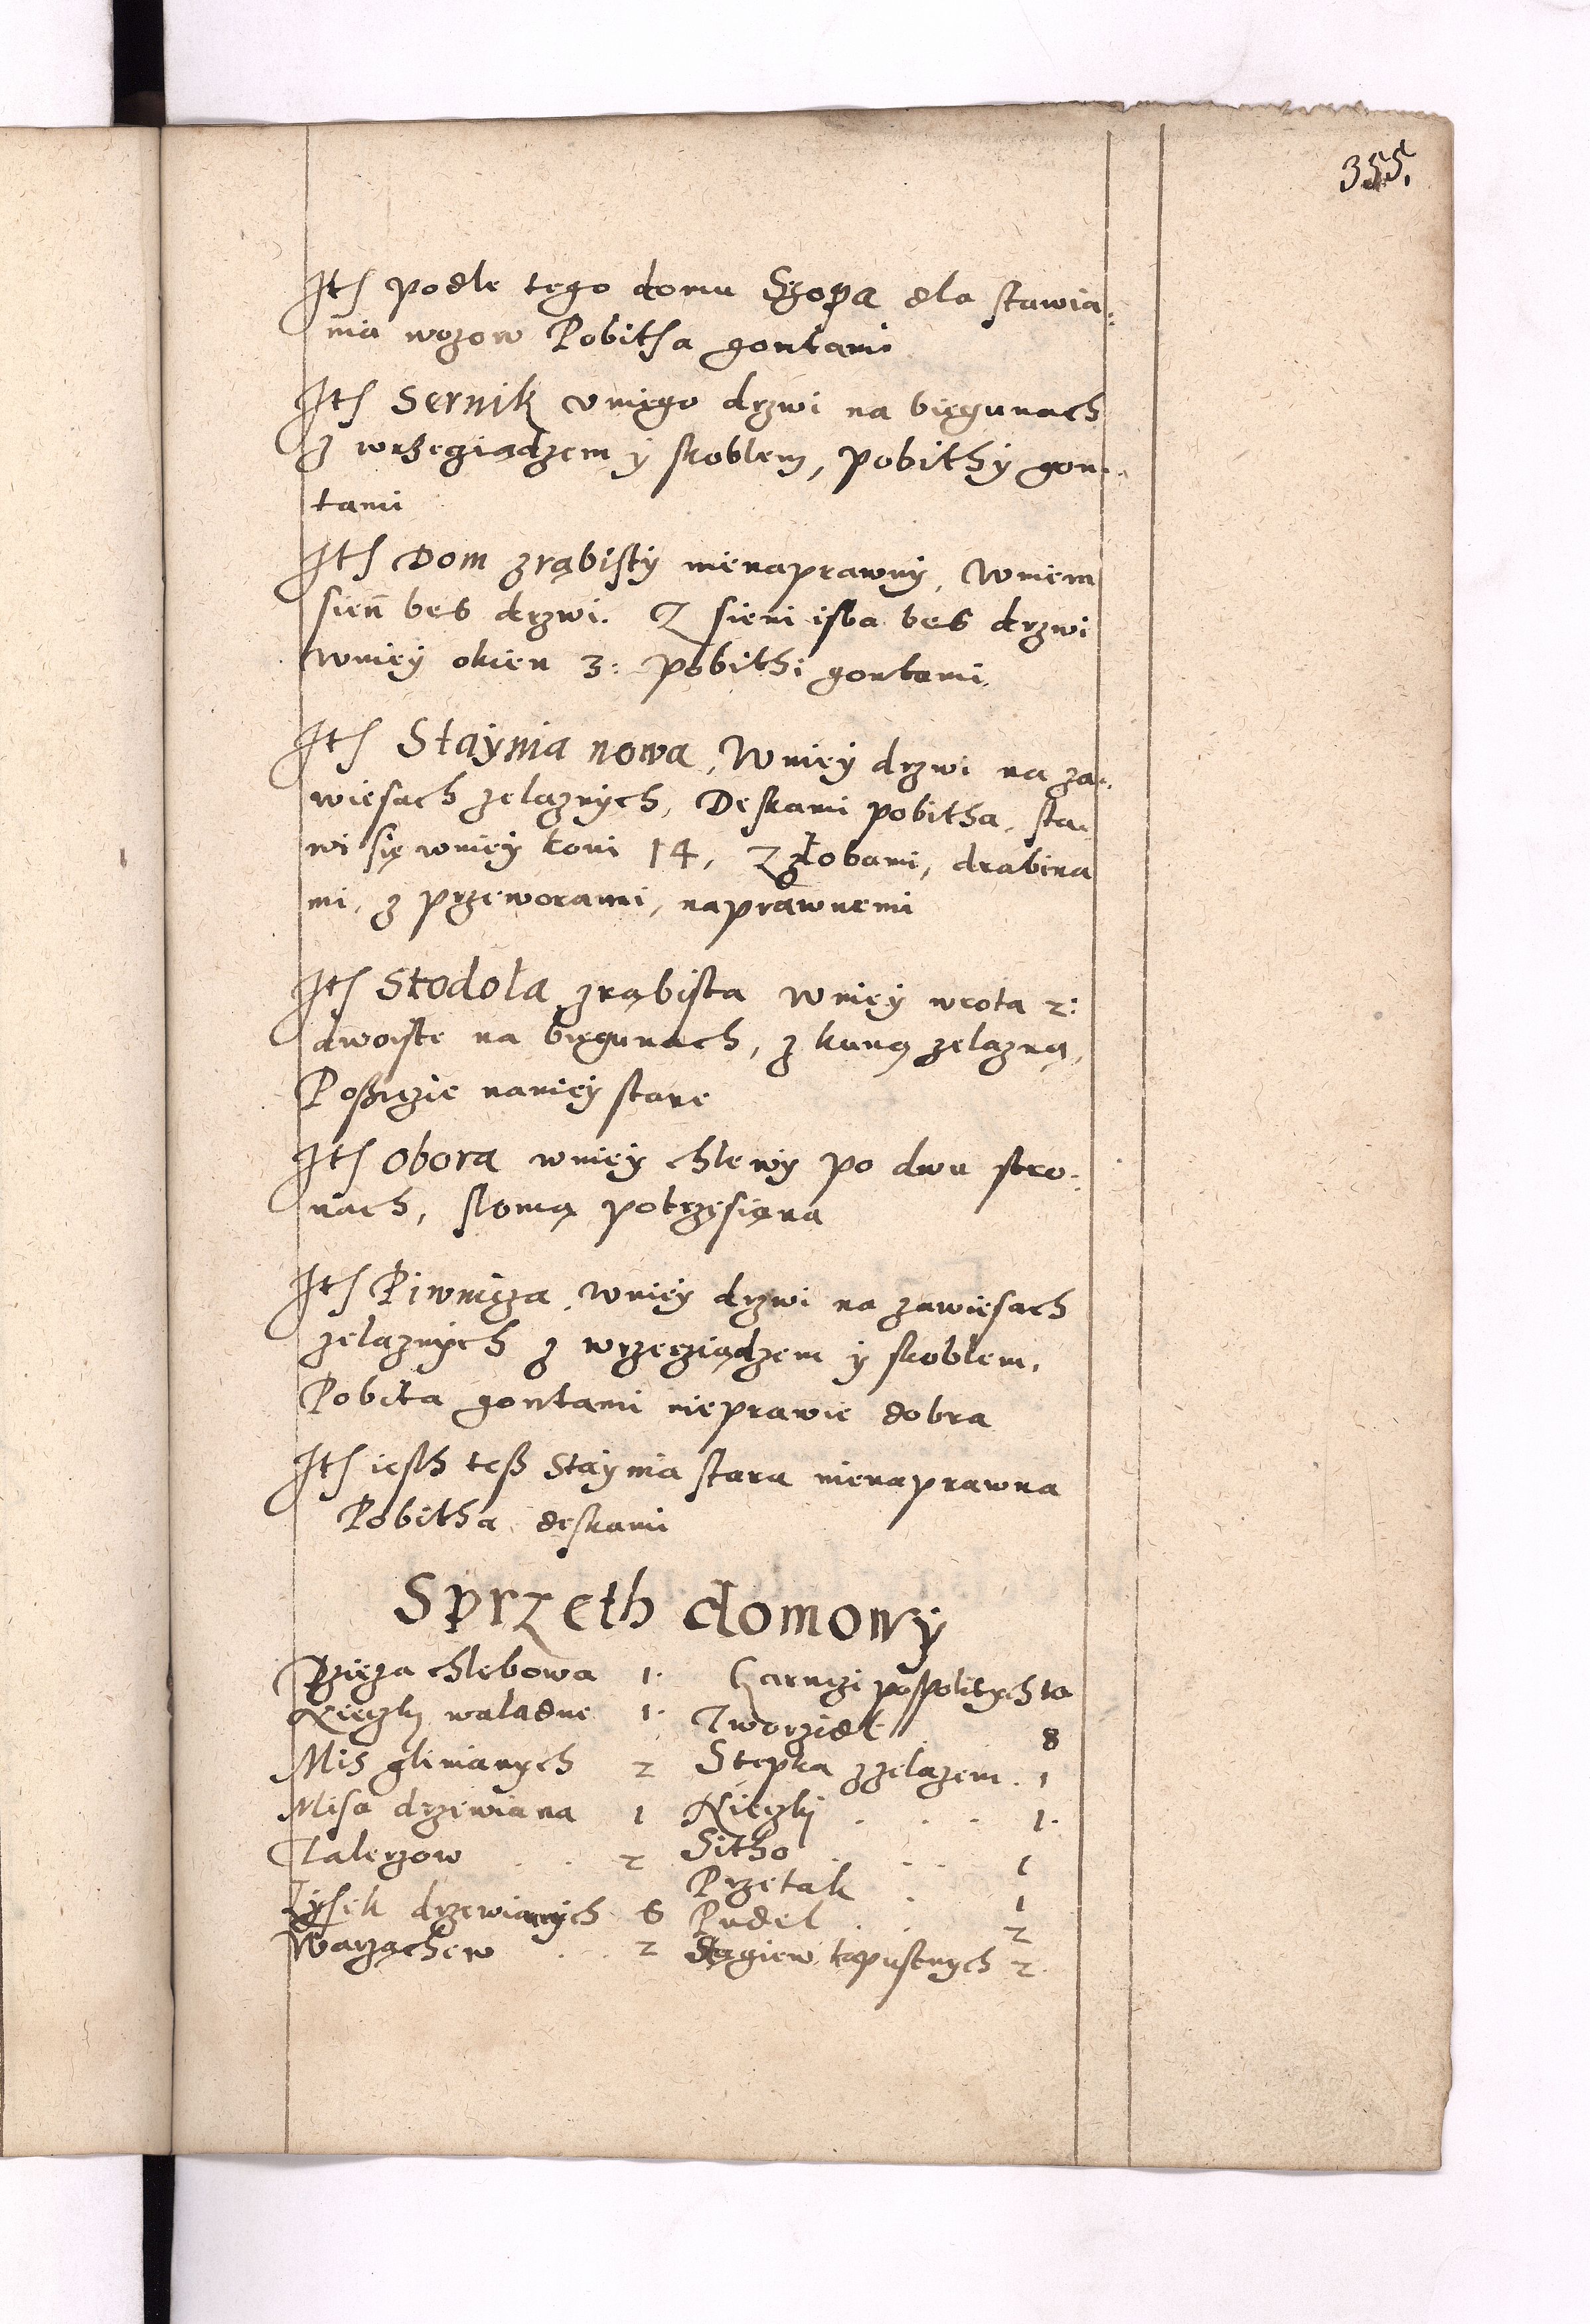 355.
Itħ podle tego domu Szopa dla stawia:
nia wozow Pobitha gontami
Itħ Sernik v niego drzwi na biegunach
z wrzeciądzem y skoblem, pobithy gon:
tami
Itħ Dom zrąbisty nienaprawny, Wniem
sień bes drzwi. Z sieni isba bes drzwi
wniey okien 3: pobithi gontami.
Itħ Staynia nowa, Wniey drzwi na za:
wiesach zelaznych, Deskami pobitha, sta:
wi się wniey koni 14, Z żłobami, drabina
mi, z przeworami, naprawnemi
Itħ Stodola zrąbista wniey wrota 2:
dwoiste na biegunach, z kuną zelazną,
Poßycie naniey stare
Itħ obora wniey chlewy po dwu stro:
nach, słomą potrzęsiąna
Itħ Piwnicza, wniey drzwi na zawiesach
zelaznych z wrzeciądzem y skoblem,
Pobita gontami nieprawie dobra
Itħ iesth teß Staynia stara nienaprawna
Pobitha deskami
Sprzeth domowy
Dzieza chlebowa 1. Garnczi pospolitych 10
Nieczky waladne 1. Tworzideł 8
Mis glinianych 2 Stepka z zelazem. 1
Misa drzewiana 1 Nieczky . . . 1.
Talerzow . . 2 Sitho . . . 1
Przetak . 1
Lyßek drzewianych 6 Pudel . . 2
Warząchew . . 2 Stągiew kapustnych 2.